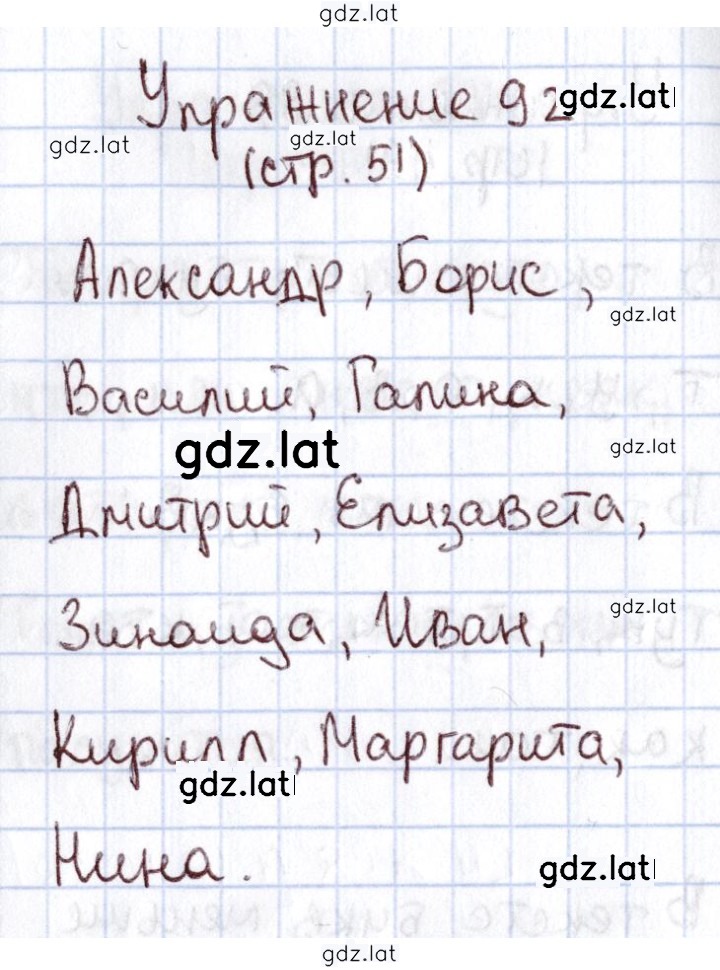 gdz.lat
Упражнение 92 gdz.lat
gdz.lat gdz.lat
(стр. 51)
Александр, Борис,
gdz.lat
Василий, Галина,
gdz.lat gdz.lat
Дмитрий, Елизавета,
gdz.lat
Зинаида, Иван,
Кирилл, Маргарита,
gdz.lat
Нина. gdz.lat
gdz.lat